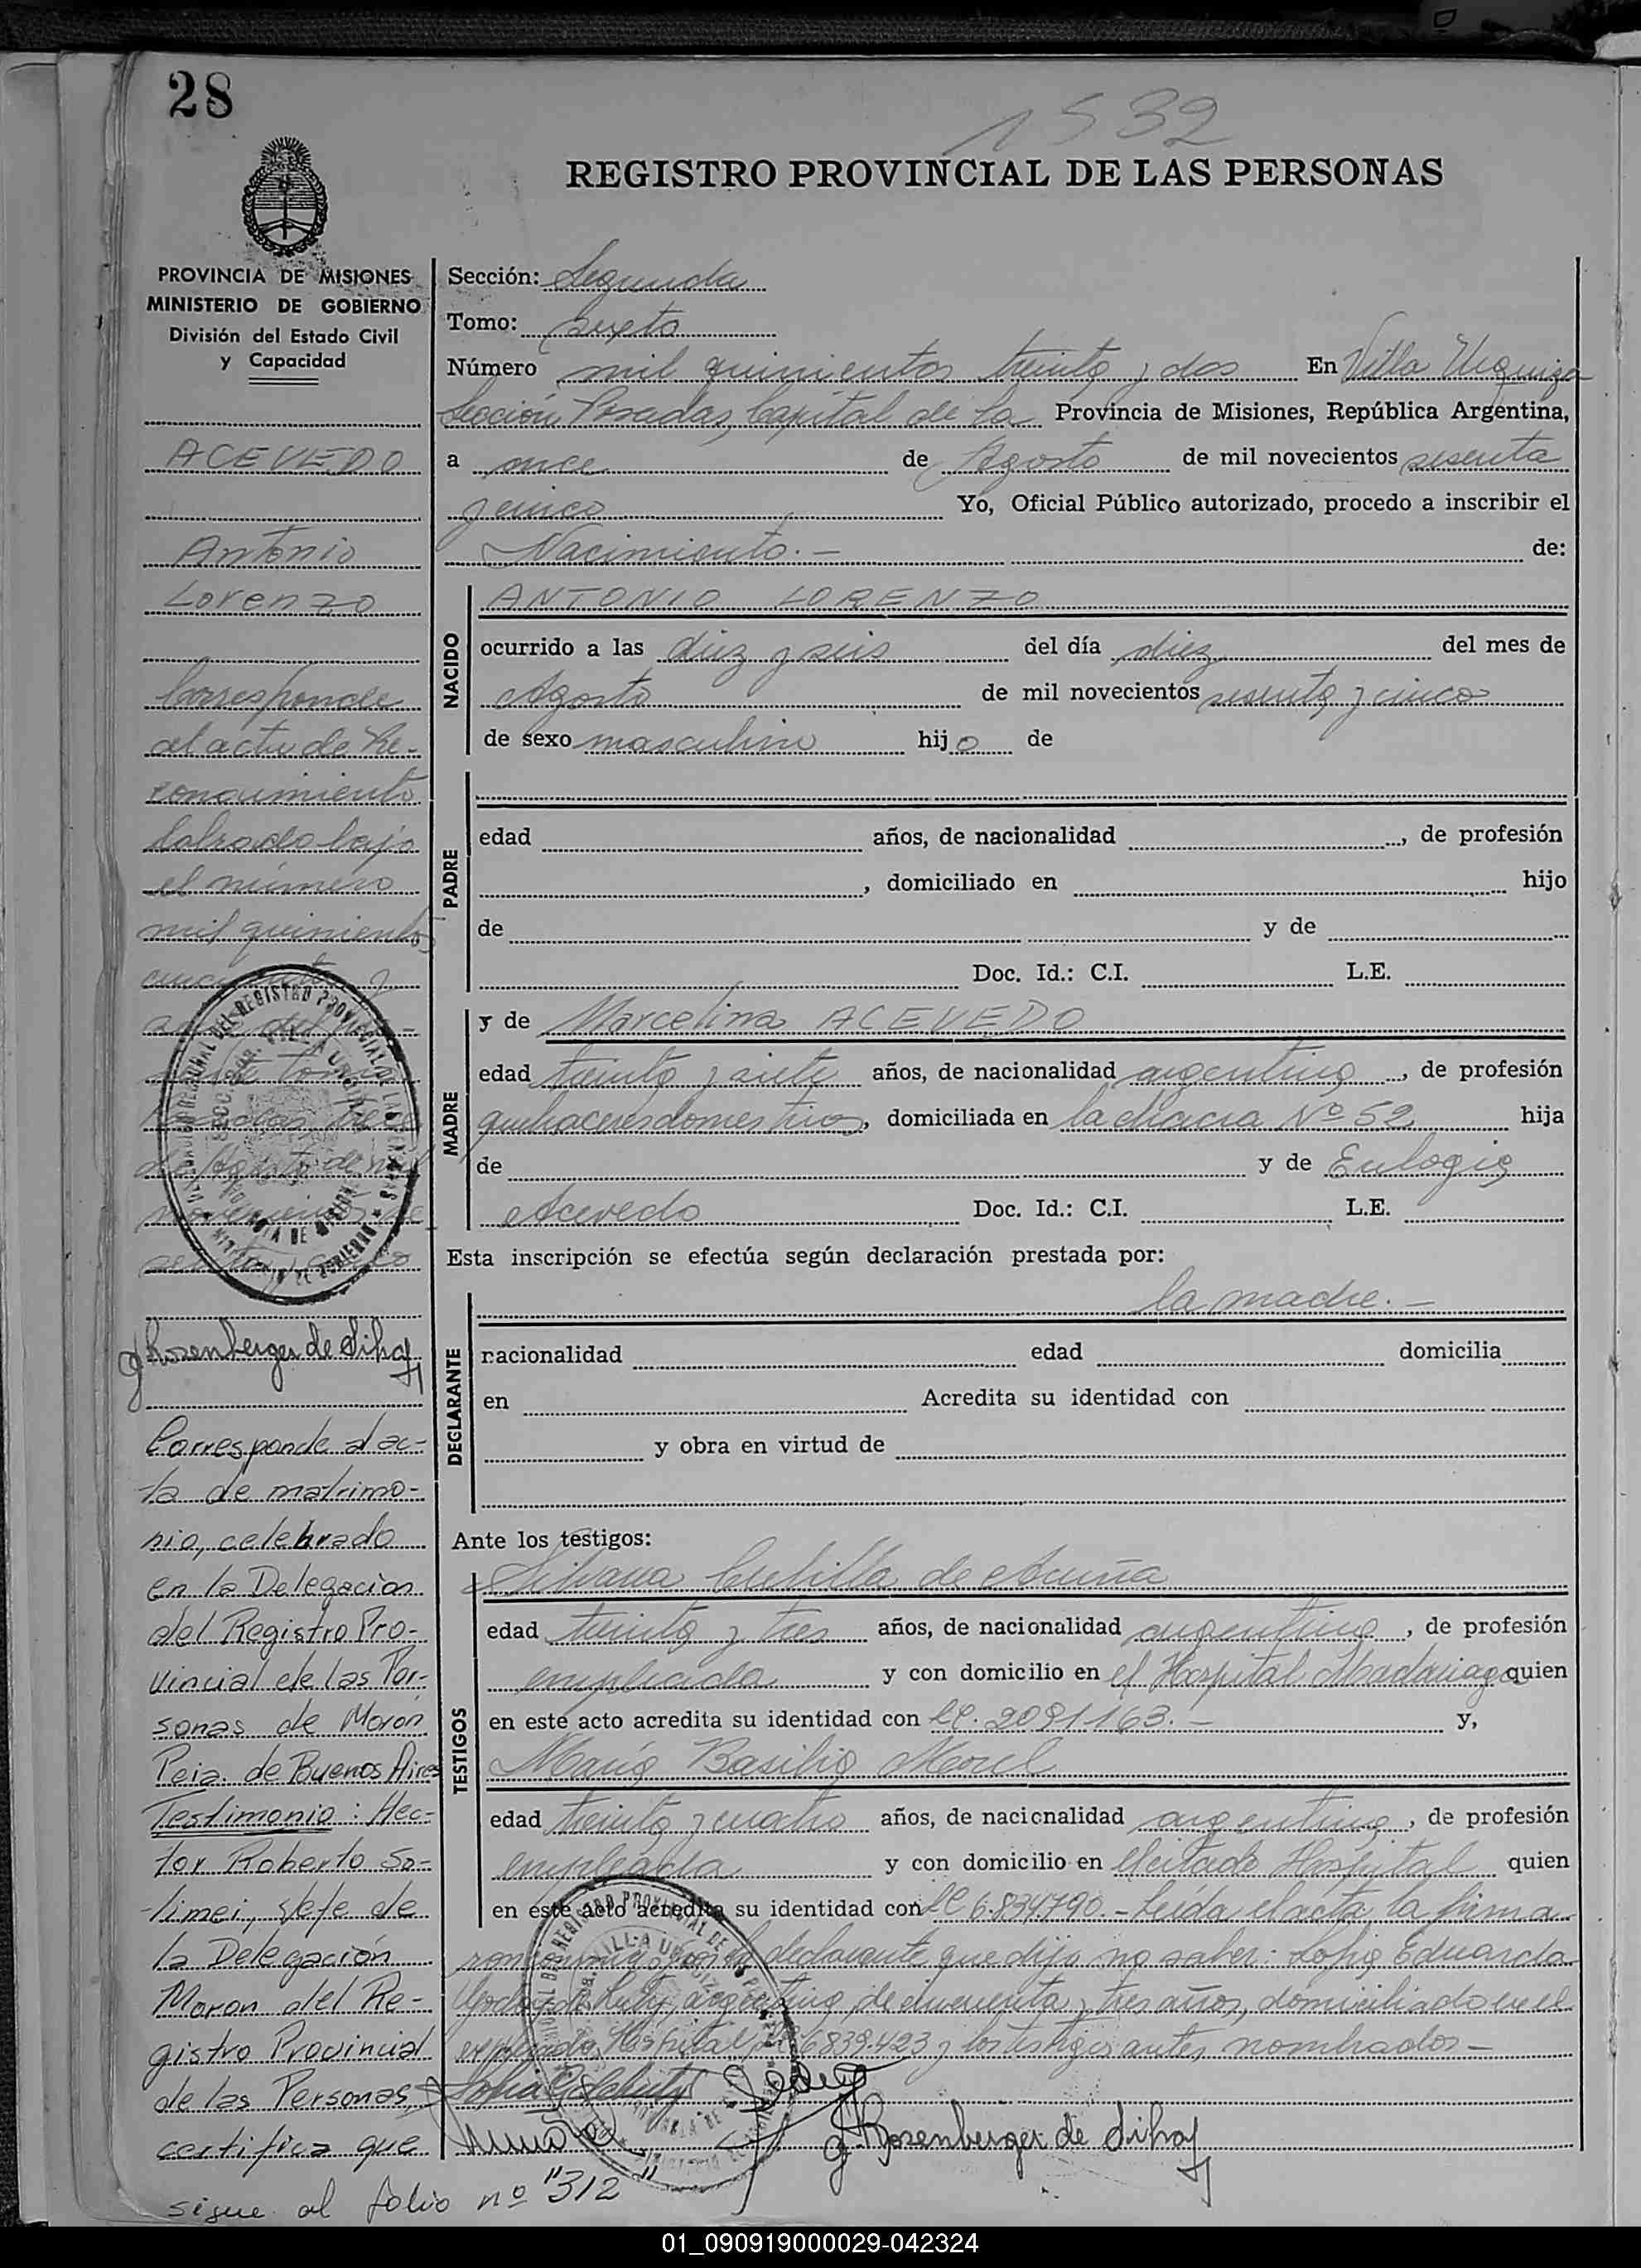 28
1532
REGISTRO PROVINCIAL DE LAS PERSONAS
PROVINCIA DE MISIONES
MINISTERIO DE GOBIERNO
División del Estado Civil
y Capacidad
ACEVEDO
Antonio
Lorenzo
Corresponde
al acta de Re-
conocimiento
labrado bajo
el número
mil quinientos
g Rosenberger de Sihoy
Corresponde al ac-
ta de matrimo-
nio, celebrado
en la Delegación
del Registro Pro-
vincial de las Per-
sonas de Morón
Pcia. de Buenos Aires
Testimonio: Hec-
tor Roberto So-
limei, Jefe de
la Delegación
Moron del Re-
gistro Provincial
de las Personas
certifica que
sigue al folio nº "312"
Sección: Segunda
Tomo: sexto
Número mil quinientos treinta y dos En Villa Urquiza
Sección Posadas, Capital de la Provincia de Misiones, República Argentina,
a once de Agosto de mil novecientos sesenta
y cinco Yo, Oficial Público autorizado, procedo a inscribir el
Nacimiento.- de:
NACIDO
ANTONIO LORENZO
ocurrido a las diez y seis del día diez del mes de
Agosto de mil novecientos sesenta y cinco
de sexo masculino hijo de
PADRE
edad años, de nacionalidad , de profesión
, domiciliado en hijo
de y de
Doc. Id.: C.I. L.E.
MADRE
y de Marcelina ACEVEDO
edad treinta y siete años, de nacionalidad argentina , de profesión
quehaceres domesticos, domiciliada en la chacra Nº 52 hija
de y de Eulogia
Acevedo Doc. Id.: C.I. L.E.
Esta inscripción se efectúa según declaración prestada por:
la madre.-
DECLARANTE
nacionalidad edad domicilia
en Acredita su identidad con
y obra en virtud de
Ante los testigos:
TESTIGOS
Silvana Cubilla de Acuña
edad treinta y tres años, de nacionalidad argentina , de profesión
empleada y con domicilio en el Hospital Madariaga quien
en este acto acredita su identidad con LC. 2091163.- y,
María Basilia Morel
edad treinta y cuatro años, de nacionalidad argentina , de profesión
empleada y con domicilio en el citado Hospital quien
en este acto acredita su identidad con LC 6.834790.- Leída el acta, la firma
conmigo, por la declarante que dijo no saber: Sofia Eduarda
argentina, de cincuenta y tres años, domiciliado en el
Hospital 6839.423 y los testigos antes nombrados-
g Rosenberger de Sihoy
01_090919000029-042324